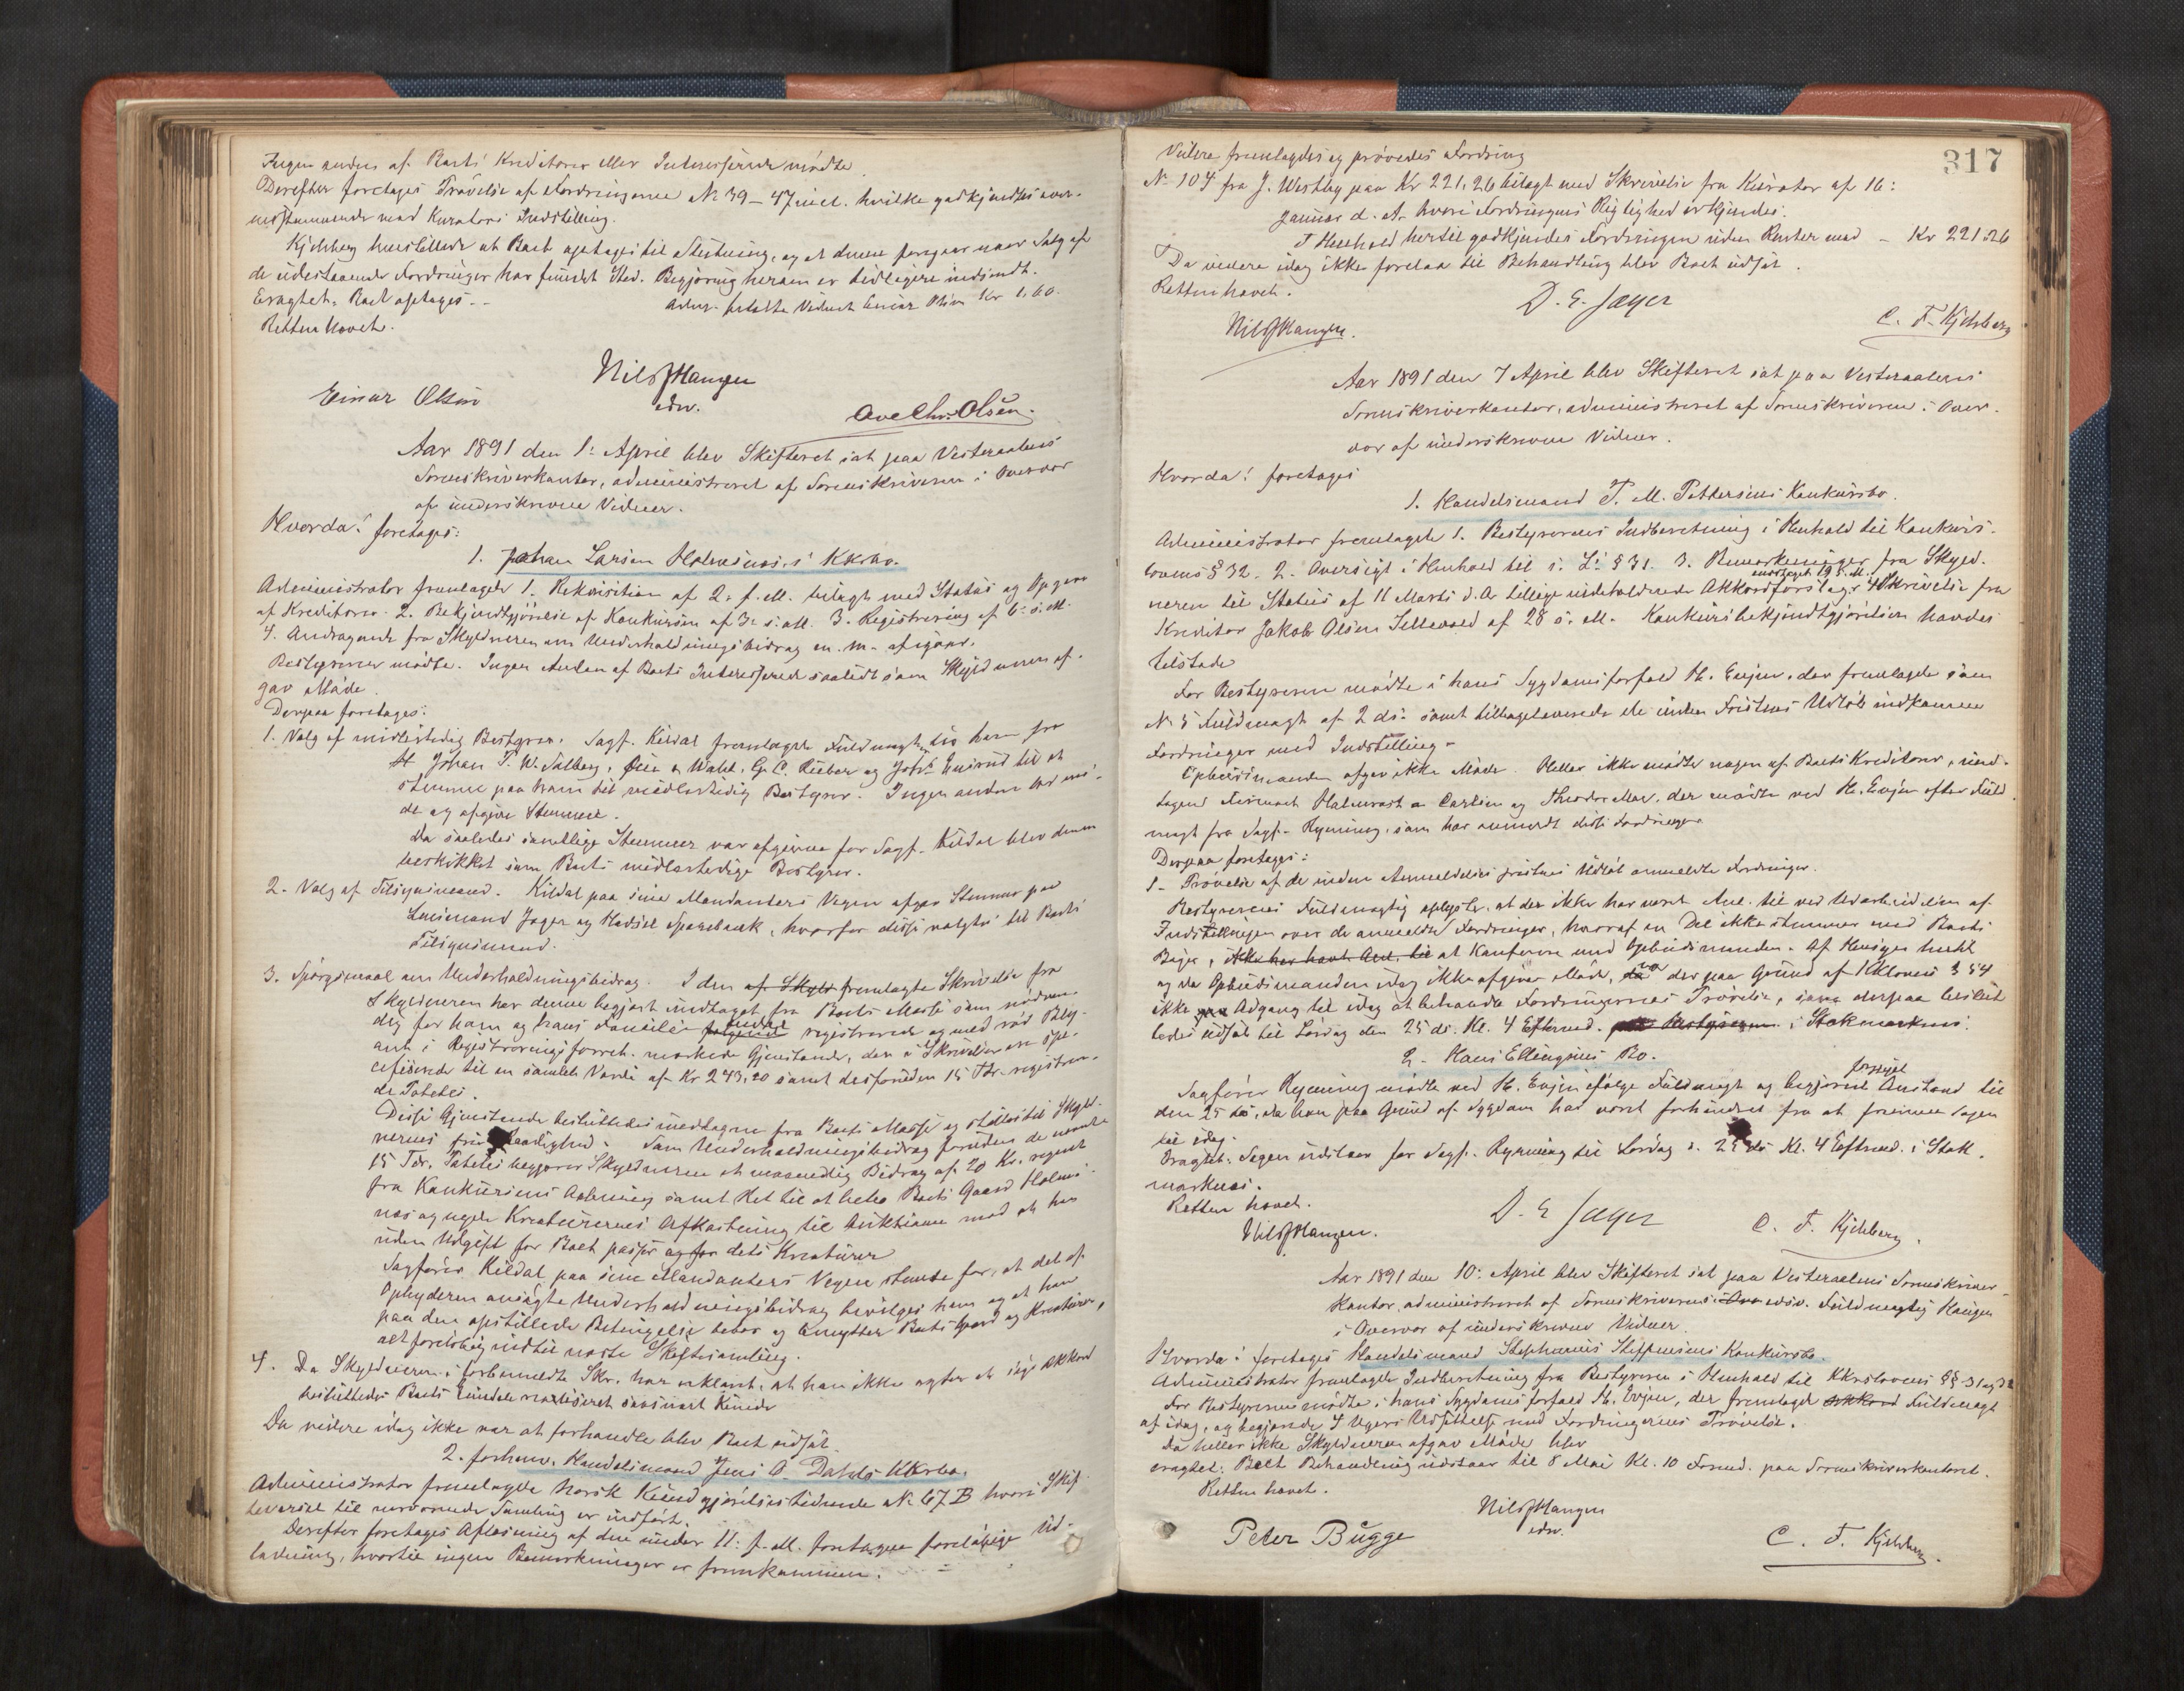 Ingen anden af Boets Kreditorer eller Interesserede mødte.
Derefter foretoges Prøvelse af Fordringerne No 39 – 47 incl. hvilke godkjendtes over-
ensstemmende med Kurators Indstilling.
Kjelsberg henstillede at Boet optages til Slutning, og at denne foregaar naar Salg af
de udestaaende Fordringer har fundet Sted. Begjæring herom er tidligere indsendt.
Eragtet: Boet optages. -
betalte Vidnet Einar Olsen Kr 1,60.
Retten hævet.
Nils Hangen
edsv.
Einar Olsen
Ove Chr. Olsen.
Aar 1891 den 1. April blev Skifteret sat paa Vesteraalens
Sorenskriverkontor, administreret af Sorenskriveren i Overvær
af underskrevne Vidner.
Hvorda! foretoges:
1. Johan Larsen Holmsnæs's KKrbo.
Administrator fremlagde 1. Rekvisition af 2. f. M. bilagt med Status og Opgave
af Kreditorer. 2. Bekjendtgjørelse af Konkursen af 3. s. M. 3. Registrering af 6. s. M.
4. Andragende fra Skyldneren om Underholdningsbidrag m. m. afigaar.
Bestyreren mødte. Ingen Anden af Boets Interesserede saavidt som Skyldneren af-
gav Møde.
Derpaa foretoges:
1. Valg af midlertidig Bestyrer. Sagf. Kildal fremlagde Fuldmagter til ham fra
Johan T. W. Salberg, Øien & Wahl, G. C. Rieber og Johs Enerud til at
stemme paa ham til midlertidig Bestyrer. Ingen anden var mø-
dt og afgive Stemme.
Da saaledes samtlige Stemmer var afgivne for Sagf. Kildal blev denne
beskikket som Boets midlertidige Bestyrer.
2. Valg af Tilsynsmænd. Kildal paa sine Mandanters Vegne afgav Stemmer paa
Lensmand Jæger og Hadsel Sparebank, hvorfor disse valgtes til Boets
Tilsynsmænd.
3. Spørgsmaal om Underholdningsbidrag. I den af Skyld fremlagte Skrivelse fra
Skyldneren har denne begjært undtaget fra Boets Masse som nødven-
dig for ham og hans Familie følgende registrerede og med rød Bly-
ant i Registreringsforretn. mærkede Gjenstande, der i Skrivelsen er spe-
cificerede til en samlet Værdi af Kr 243,20 samt desforuden 15 Tdr. registrere-
de Poteter.
Disse Gjenstande besluttedes undtagne fra Boets Masse og stilledes til Skyld-
nerens frie Raadighed. Som Underholdningsbidrag foruden de nævnte
15 Tdr. Poteter begjærer Skyldneren et maanedlig Bidrag af 20 Kr. regnet
fra Konkursens Aabning samt Ret til at bebo Boets Gaard Holms-
næs og nyde Kreaturernes Afkastning til Auktionen mod at han
uden Udgift for Boet passer og for dets Kreaturer
Sagfører Kildal paa sine Mandanters Vegne stemte for, at det af
Opbyderen ansøgte Underholdningsbidrag bevilges ham og at han
paa den opstillede Betingelse bebor og benytter Boets Gaard og Kreaturer,
alt foreløbig indtil næste Skiftesamling.
4. Da Skyldneren i forbemeldte Skr. har erklæret, at han ikke agter at søge Akkord
besluttedes Boets Eiendele realiseret saasnart Kunde
Da videre idag ikke var at forhandle blev Boet udsat.
2. forhenv. Handelsmand Jens O. Dahls KKrbo.
Administrator fremlagde Norsk Kundgjørelsestidende No 67 B hvori Skif-
tevarsel til nærværende Samling er indført.
Derefter foretoges Aflæsning af den under 11. f. M. foretagne foreløbige Ud-
lodning, hvortil ingen Bemærkninger er fremkommen.
317
Videre fremlagdes og prøvedes Fordring
No 104 fra J. Westby paa Kr 221,26 bilagt med Skrivelse fra Kurator af 16.
Januar d. A. hvori Fordringens Rigtighed erkjendes.
I Henhold hertil godkjendes Fordringen uden Renter med – Kr 221.26
Da videre idag ikke forelaa til Behandling blev Boet udsat.
Retten hævet.
D. E. Jæger
Nils Hangen.
C. F. Kjelsberg
Aar 1891 den 7 April blev Skifteret sat paa Vesteraalens
Sorenskriverkontor, administreret af Sorenskriveren i Over-
vær af underskrevne Vidner.
Hvorda! foretoges
1. Handelsmand P. M. Pettersens Konkursbo.
Administrator fremlagde 1. Bestyrerens Indberetning i Henhold til Konkurs-
lovens § 32. 2. Oversigt i Henhold til s. L. § 31. 3. Bemærkninger fra Skyld-
neren til Status af 11 Marts d. A. tillige indeholdende Akkordforslag, modtaget 19 s. M. 4 Skrivelse fra
Kreditor Jakob Olsen Sellevold af 28 s. M. Konkursbekjendtgjørelsen havdes
tilstede
For Bestyreren mødte i hans Sygdomsforfald H. Evjen, der fremlagde som
No 5 Fuldmagt af 2 ds. samt tilbageleverede de inden Fristens Udløb indkomne
Fordringer med Indstilling.
Opbudsmanden afgav ikke Møde. Heller ikke mødte nogen af Boets Kreditorer, und-
tagen Firmaet Halvorsen & Larsen og Theodor Moe, der mødte ved H. Evjen efter Fuld-
magt fra Sagf. Rynning, som har anmeldt disse Fordringer.
Derpaa foretoges:
1. Prøvelse af de inden Anmeldelsesfristens Udløb anmeldte Fordringer.
Bestyrerens Fuldmægtig oplyste, at der ikke har været Anl. til ved Udarbeidelsen af
Indstillingen over de anmeldte Fordringer, hvoraf en Del ikke stemmer med Boets
Bøger, ikke har havt Anl. til at konferere med Opbudsmanden. Af Hensyn hertil
og da Opbudsmanden idag ikke afgiver Møde, da var der paa Grund af KKlovens § 54
ikke Adgang til idag at behandle Fordringernes Prøvelse, som derpaa beslut-
tedes udsat til Lørdag den 25 ds. Kl. 4 Eftermd. i Stokmarknæs.
2. Hans Ellingsens Bo.
Sagfører Rynning mødte ved H. Evjen ifølge Fuldmagt og begjærede fornyet Anstand til
den 25 ds, da han paa Grund af Sygdom har været forhindret fra at fremme Sagen
til idag.
Eragtet: Sagen udstaar for Sagf. Rynning til Lørdag d. 25 ds Kl. 4 Eftmd. i Stok-
marknæs.
Retten hævet.
Nils Hangen.
D. E Jæger
C. F. Kjelsberg.
Aar 1891 den 10. April blev Skifteret sat paa Vesteraalens Sorenskriver-
kontor, administreret af Sorenskriverens edsv. Fuldmægtig Hangen
i Overvær af underskrevne Vidner.
Hvorda! foretoges Handelsmand Stephanus Steffensens Konkursbo.
Administrator fremlagde Indberetning fra Bestyreren i Henhold til KKrslovens §§ 31 og 32
For Bestyreren mødte i hans Sygdomsforfald H. Evjen, der fremlagde Fuldmagt
af idag, og begjærede 4 Ugers Udsættelse med Fordringernes Prøvelse.
Da heller ikke Skyldneren afgav Møde blev
eragtet: Boets Behandling udstaar til 8 Mai Kl. 10 Formd. paa Sorenskriverkontoret.
Retten hævet.
Nils Hangen
edsv.
Peter Bugge
C. F. Kjelsberg.